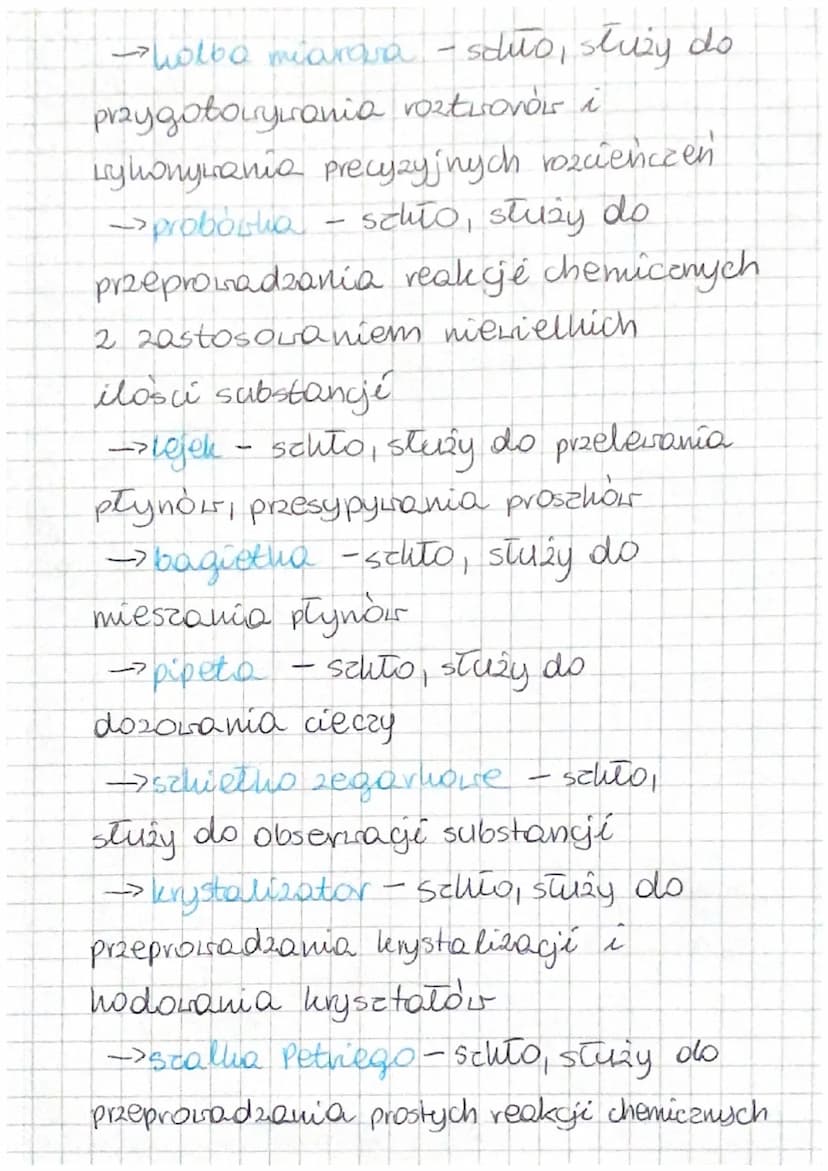 → kolba miarowa - szkło, służy do
przygotowywania roztworów i
wykonywania precyzyjnych rozcieńczeń
→ probówka - szkło, służy do
przeprowadzania reakcji chemicznych
z zastosowaniem niewielkich
ilości substancji
→ lejek - szkło, służy do przelewania
płynów, przesypywania proszków
→ bagietka - szkło, służy do
mieszania płynów
→ pipeta - szkło, służy do
dozowania cieczy
→ szkiełko zegarkowe - szkło,
służy do obserwacji substancji
→ krystalizator - szkło, służy do
przeprowadzania krystalizacji i
hodowania kryształów
→ szalka Petriego - szkło, służy do
przeprowadzania prostych reakcji chemicznych